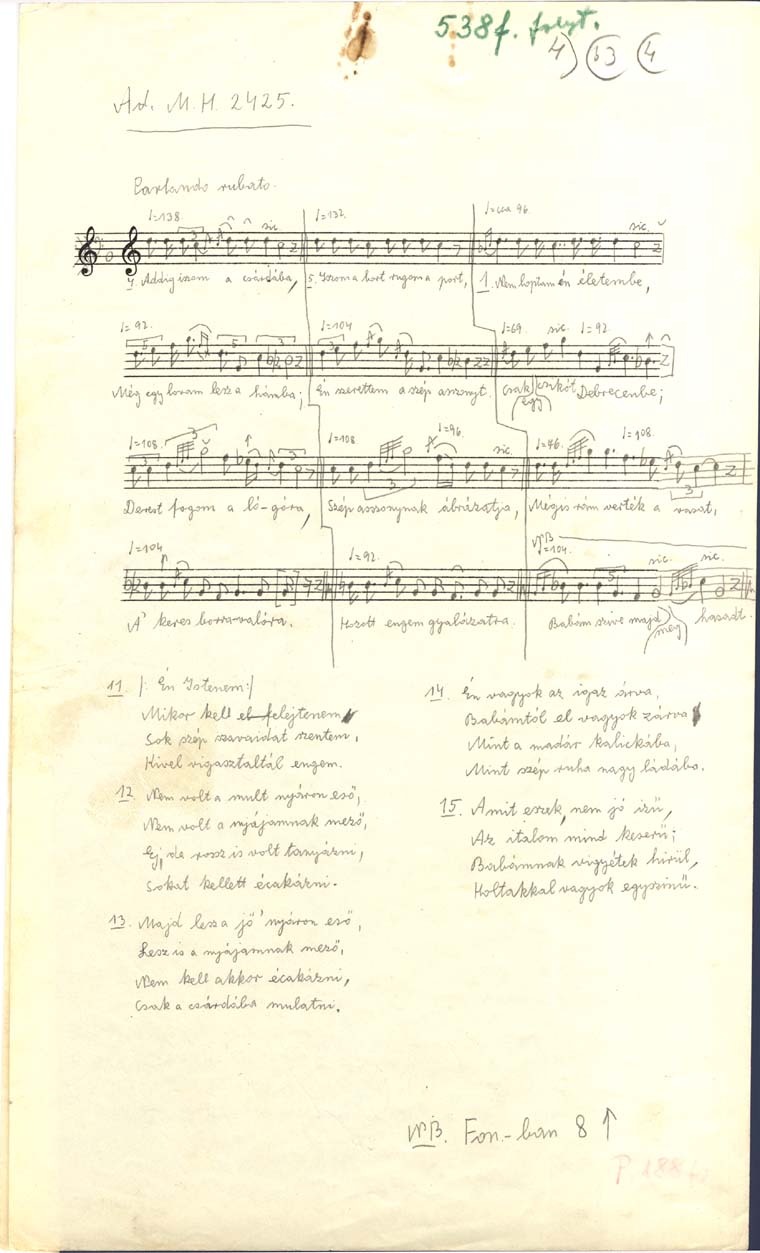 538f. folyt.
4) 63 4
Ad. M.H. 2425.
Parlando rubato.
♩=138. ♩=132. ♩=cca. 96
3 sic. sic.
4. Addig iszom a csárdába, 5. Iszom a bort rúgom a port, 1. Nem loptam én életembe,
♩=92. ♩=104 ♩=69. sic. ♩=92.
5 5 3 3
Még egy lovam lesz a hámba; Én szerettem a szép asszonyt. Csak csikót Debrecenbe;
egy
♩=108. ♩=108 ♩=96. ♩=46. ♩=108.
3 3 3 3 sic. 3
Derest fogom a ló-góra, Szép asszonynak ábrázatja, Mégis rám verték a vasat,
NB
♩=104 ♩=92. ♩=104.
5 sic. sic.
A' keres borra-valóra. Hozott engem gyalázatra. Babám szive majd hasadt.
meg
11. /: Én Istenem:/
Mikor kell el felejtenem
Sok szép szavaidat szentem,
Kivel vigasztaltál engem.
12. Nem volt a mult nyáron eső,
Nem volt a nyájamnak mező,
Ej, de rossz is volt tanyázni,
Sokat kellett écakázni.
13. Majd lessz a jő' nyáron eső,
Lesz is a nyájamnak mező,
Nem kell akkor écakázni,
Csak a csárdába mulatni.
14. Én vagyok az igaz árva,
Babámtól el vagyok zárva
Mint a madár kalickába,
Mint szép ruha nagy ládába.
15. Amit eszek, nem jó izű,
Az italom mind keserű;
Babámnak vigyétek hirül,
Holtakkal vagyok egyszinű.
NB. Fon.-ban 8 ↑